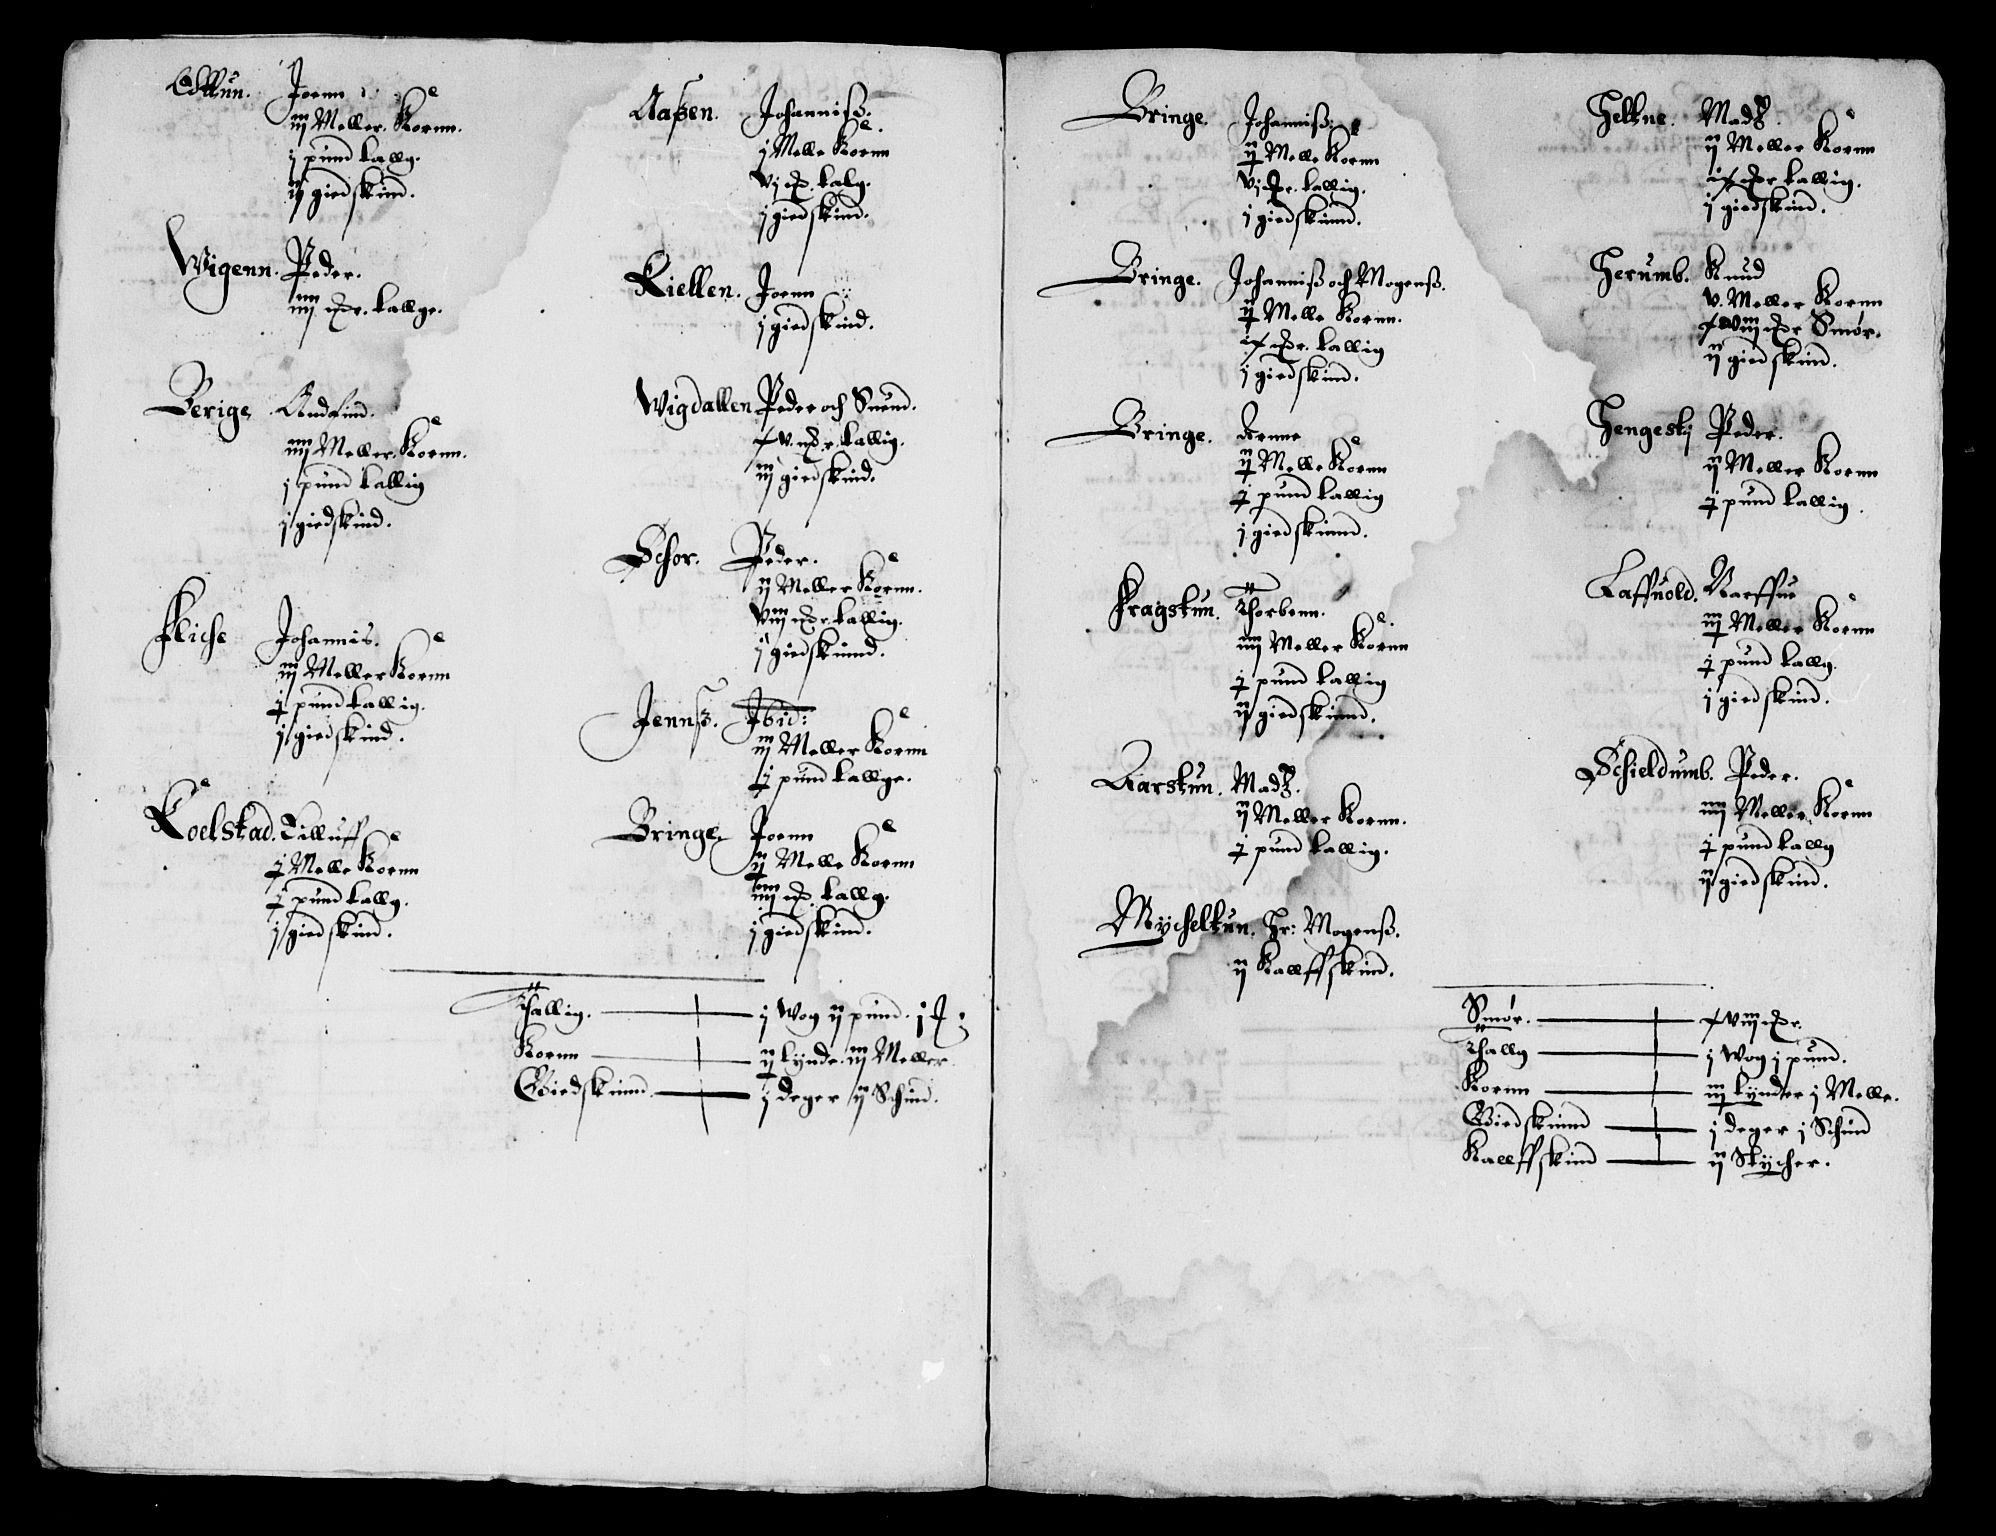 Joenn
iij Meller Kornn.
j pund tallg.
ij giedskind.
Wigenn. Peder.
iiij mr. tallge.
Berige. Andfind.
iiij Meller Kornn.
j pund tallig
j giedskind.
Fliche Johannis.
iij Meller Kornn
j pund tallig.
j giedskind.
Koelstad. Tilluff
j Melle Kornn
j pund tallg.
j giedskind.
Aaßen. Johanniß.
j Melle Kornn
vj mr. talg.
j giedskind.
Kiellen. Joenn
j giedskind.
Wigdallen Peder och Suend.
xv. mr. tallig.
iij giedskind.
Schor. Peder.
ij Meller Kornn.
viij mr. tallig.
j giedskinnd.
Jennß. Ibid:
iij Meller Kornn
j pund tallge.
Bringe. Joenn
ij Melle Kornn
iiij mr. tallg.
j giedskind.
Thallig. j Wog ij pund.
Kornn ij tynde. iij Meller.
Giedskinnd. j deger ij Schind.
Bringe. Johanniß.
ij Melle Kornn
vj mr. tallig.
j giedskinnd.
Bringe. Johanniß och Mogenß.
ij Melle Kornn.
ix mr. tallig
j giedskind.
Bringe. Arnne
ij Melle Kornn
j pund tallig
j giedskinnd.
Fragstun. Thorbenn.
iiij Meller Kornn
j pund tallig
ij giedskinnd.
Aarstun. Madz.
ij Meller Kornn.
j pund tallig.
Mycheltun. Hr: Mogenß.
ij Kallffskind.
Heltne. Madz.
ij Meller Kornn
ix mr. tallig.
j giedskind.
Herumb. Knud
v. Meller Kornn
xviij mr Smør.
ij giedskind.
Hengestj Peder.
ij Meller Kornn
j pund tallig.
Laffuold. Narffue
iij Meller Kornn
j pund tallg.
j giedskind.
Schieldumb. Peder.
iiij Meller Kornn
j pund tallg
ij giedskind.
Smør. xviij mr.
Thallg j Wog j pund.
Kornn iij tynder j Melle.
Giedskinnd j deger j Schind
Kallffskind ij Stycher.